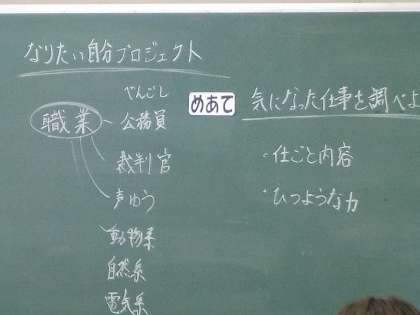 なりたい自分プロジェクト
べんごし
職業
公務員
裁判官
声ゆう
動物系
自然系
電気系
めあて
気になった仕事を調べよ
・仕ごと内容
・ひつような力